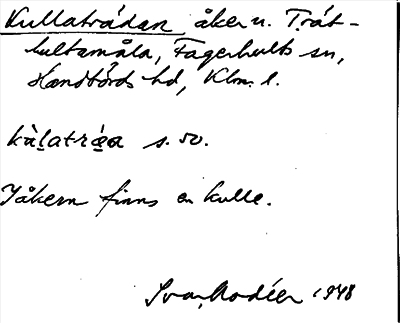 Kullaträdan åker u. Trät-
hultamåla, Fagerhults sn,
Handbörds hd, Klm. l.
kùlatrǽa s. 50.
I åkern finns en kulle.
Ivar Modéer 1948